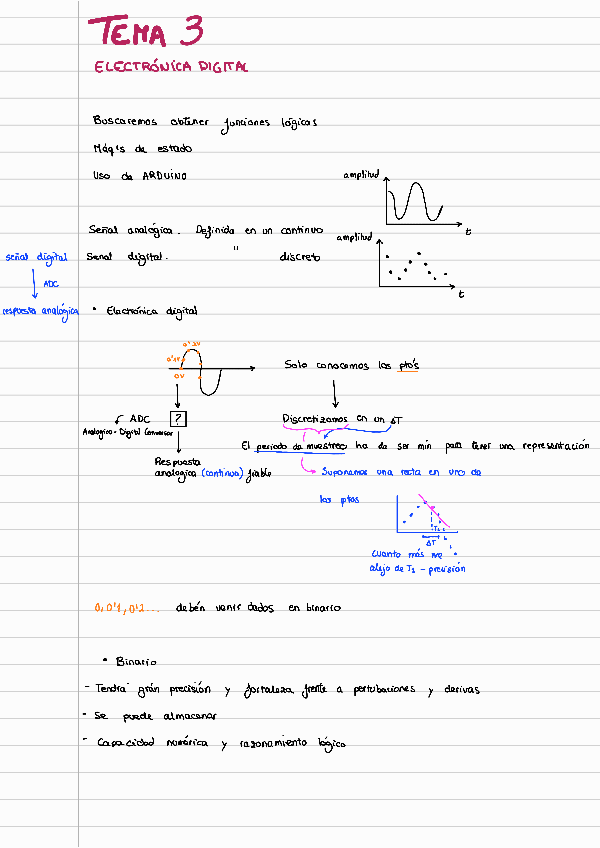 TEMA 3
ELECTRÓNICA DIGITAL
Buscaremos obtener funciones lógicas
Máq's de estado
Uso de ARDUINO
amplitud
t
Señal analógica. Definida en un continuo
amplitud
señal digital
Senal digital. " discreto
ADC
t
respuesta analógica
• Electrónica digital
0'2V
0'1V
0V
Solo conocemos los pto's
ADC
?
Discretizamos en un ΔT
Analogico - Digital Conversor
El periodo de muestreo ha de ser mín para tener una representación
Respuesta
analogica (continua) fiable
Suponemos una recta en uno de
los ptos
T1
ΔT
Cuanto más me
alejo de T1 - precisión
0, 0'1, 0'2... debén venir dados en binario
• Binario
- Tendra grán precisión y fortaleza frente a pertubaciones y derivas
- Se puede almacenar
- Capacidad numérica y razonamiento lógico